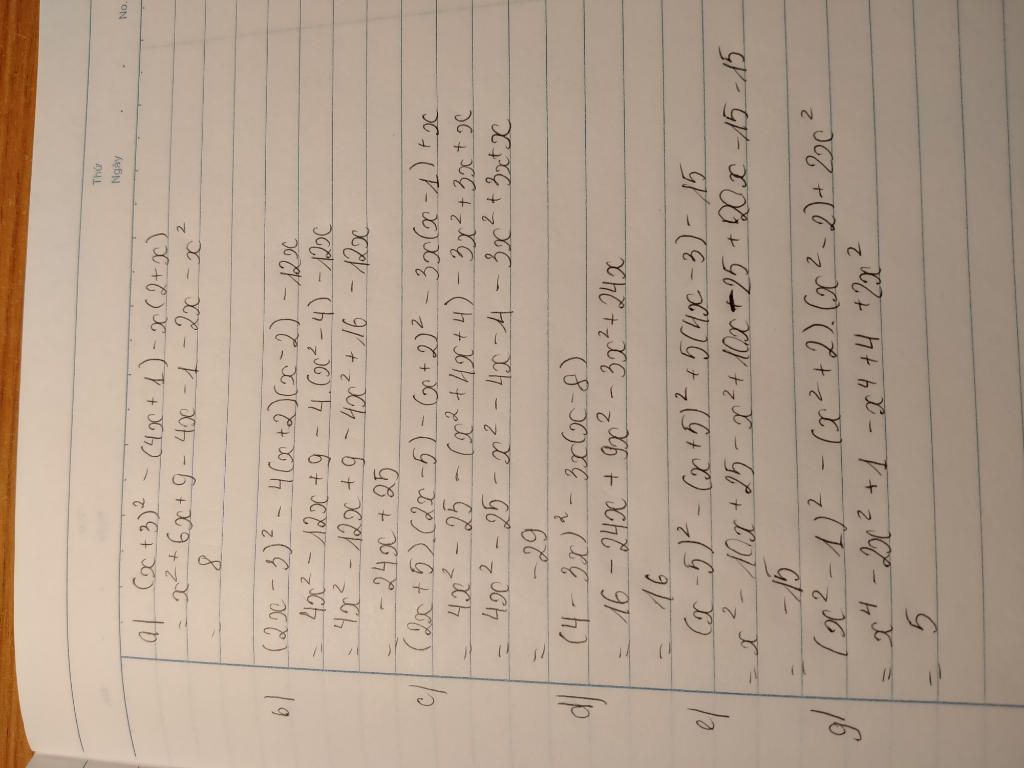 Thứ
Ngày
No.
a) (x+3)² - (4x+1) - x(2+x)
= x² + 6x + 9 - 4x - 1 - 2x - x²
= 8
b) (2x-3)² - 4(x+2)(x-2) - 12x
= 4x² - 12x + 9 - 4.(x²-4) - 12x
= 4x² - 12x + 9 - 4x² + 16 - 12x
= -24x + 25
c) (2x+5)(2x-5) - (x+2)² - 3x(x-1) + x
= 4x² - 25 - (x²+4x+4) - 3x² + 3x + x
= 4x² - 25 - x² - 4x - 4 - 3x² + 3x + x
= -29
d) (4-3x)² - 3x(x-8)
= 16 - 24x + 9x² - 3x² + 24x
= 16
e) (x-5)² - (x+5)² + 5(4x-3) - 15
= x² - 10x + 25 - x² + 10x - 25 + 20x - 15 - 15
= -15
g) (x²-1)² - (x²+2).(x²-2) + 2x²
= x⁴ - 2x² + 1 - x⁴ + 4 + 2x²
= 5